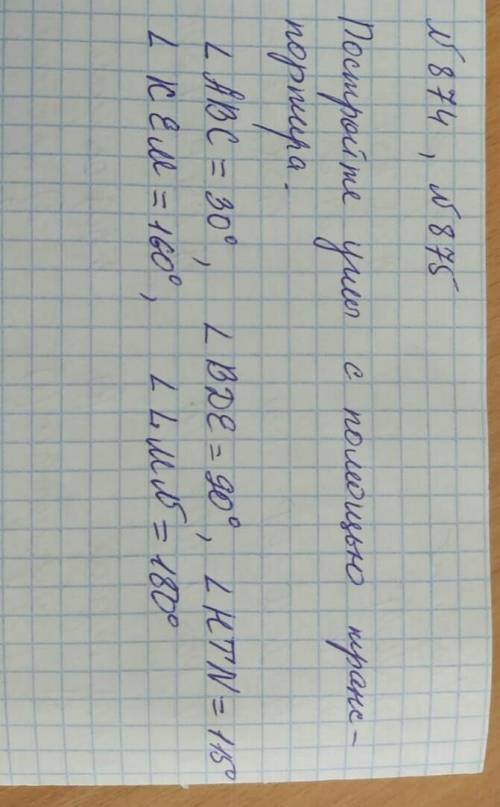 № 874, № 875
Постройте углы с помощью транс-
портира.
∠ ABC = 30°, ∠ BDE = 90°, ∠ KTN = 115°
∠ KEM = 160°, ∠ LMN = 180°